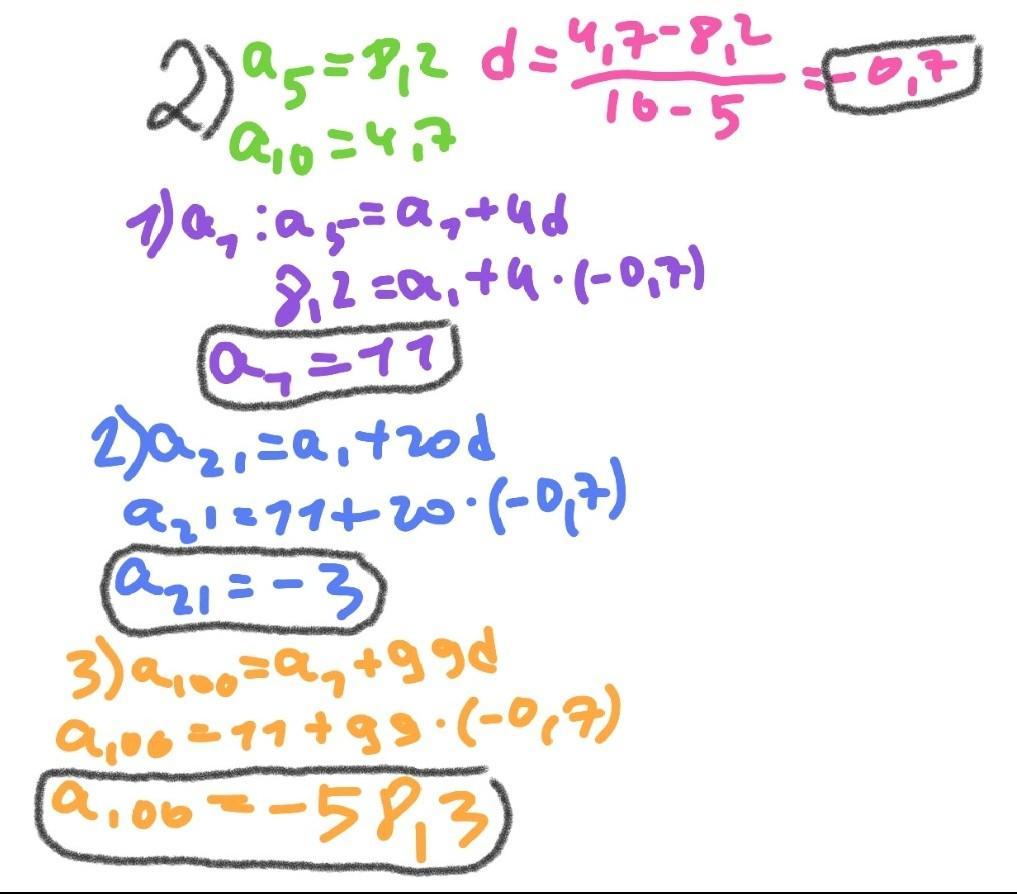 2) a₅ = 8,2   d = (4,7 - 8,2)/(10 - 5) = -0,7
a₁₀ = 4,7
1) a₁ : a₅ = a₁ + 4d
8,2 = a₁ + 4 · (-0,7)
a₁ = 11
2) a₂₁ = a₁ + 20d
a₂₁ = 11 + 20 · (-0,7)
a₂₁ = -3
3) a₁₀₀ = a₁ + 99d
a₁₀₀ = 11 + 99 · (-0,7)
a₁₀₀ = -58,3